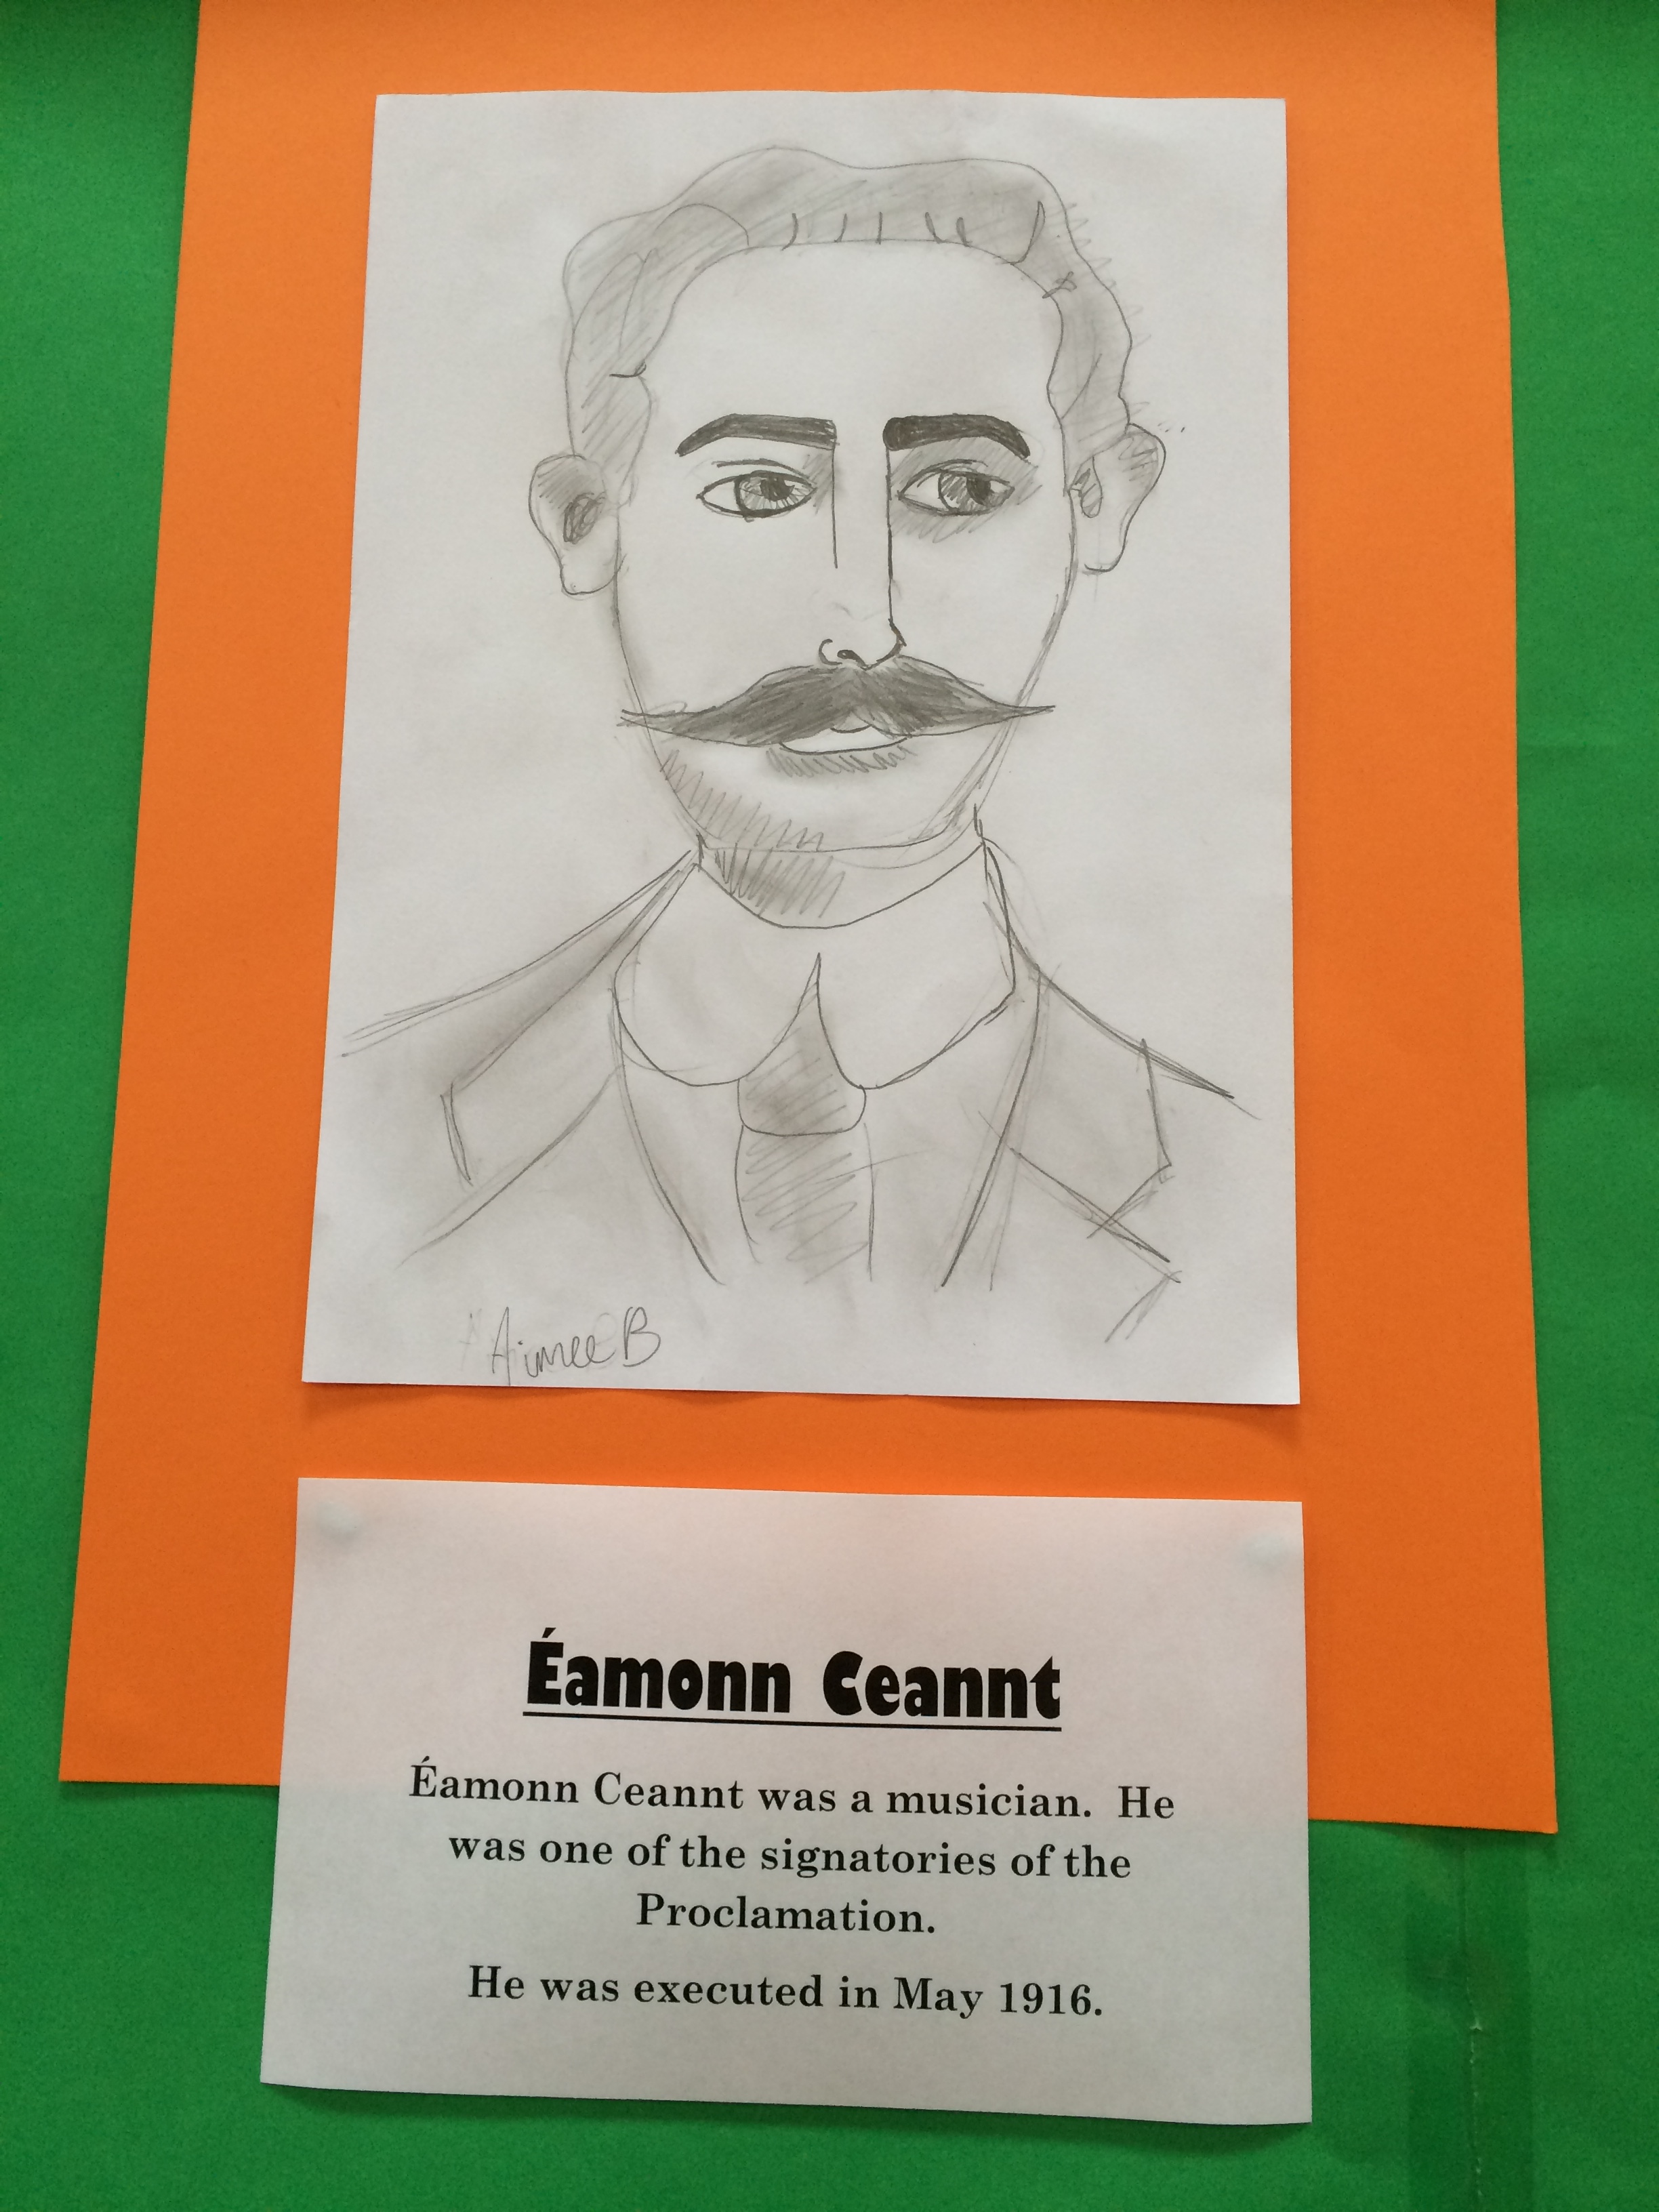 Aimee B
Éamonn Ceannt
Éamonn Ceannt was a musician.  He
was one of the signatories of the
Proclamation.
He was executed in May 1916.